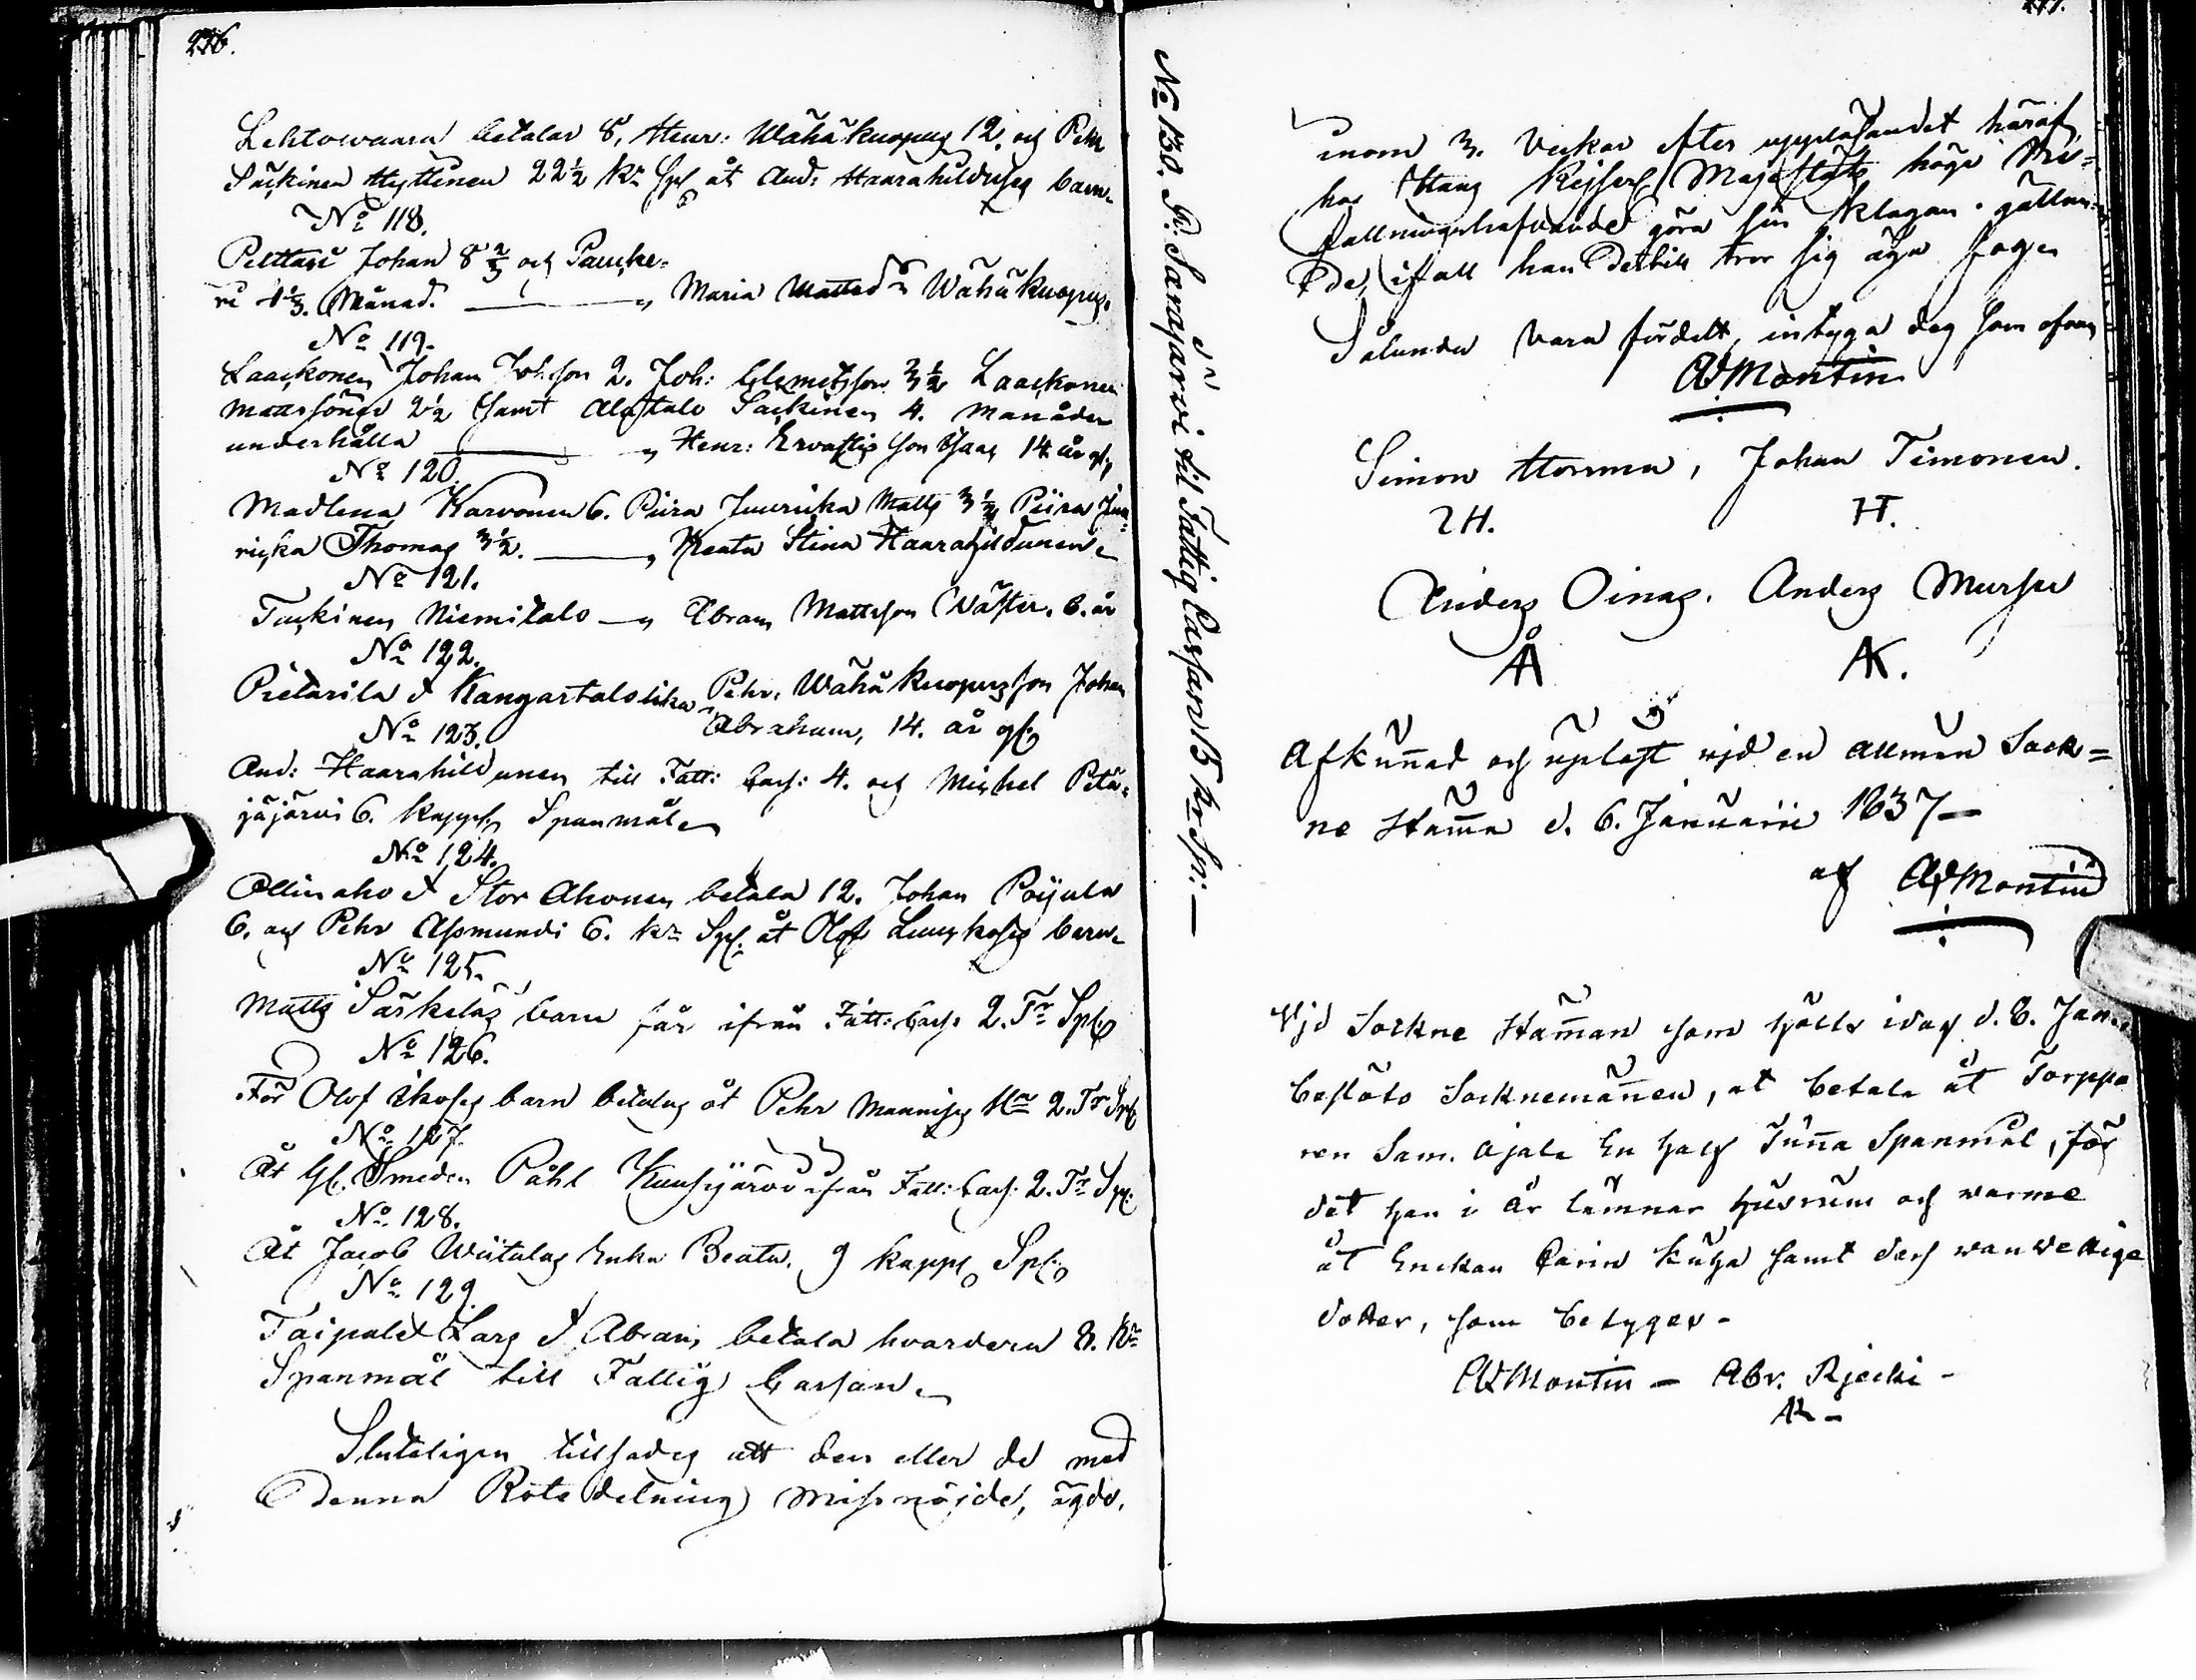 276.
Lehtowaara betalar 8, Henr: Wähäkuopus 12. och Pehr
Säckinen Hyttinen 22½ Kr Spl åt And: Haarahildusens barn.
No 118.
Pelttari Johan 8⅔ och
ri 1⅓. Månad. — " Maria Mattsdr Wähäkuopus.
No 119.
Laackonen Johan Johsson 2. Joh: Clemetsson 3½ Laackonen
Mattssöner 2½ samt Alatalo Säckinen 4. månader
underhålla — " Henr: Ervastis son Isaac 14 år gl.
No 120.
Madlena Karvonen 6. Piira Juuricka Matts 3½ Piira Juu-
ricka Thomas 3½. — " Beata Stina Haarahildunen.
No 121.
Tuckinen Niemitalo — " Abram Mattsson 6. år
No 122.
Pietarila & Kangastalo lika Pehr. Wähäkuopus son Johan
Abraham, 14. år gl.
No 123.
And: Haarahildunen till Fatt: Cass: 4. och Michel Petä-
jäjärvi 6. Kappar Spanmål.
No 124.
Ollinaho & Stor Ahonen betala 12. Johan Poijula
6. och Pehr Asmundi 6. Kr Spl. åt Olof barn.
No 125.
Matts Särkelas barn får ifrån Fatt: Cass: 2. Tr Spl.
No 126.
För Olof Ikosens barn betalas åt Pehr 2. Tr Spl
No 127.
Åt Gl. Smeden Påhl Kuusijärvi ifrån Fatt: Cass: 2. Tr Spl:
No 128.
Åt Jacob Wiitalas Enka Beata. 9 Kappr Spl.
No 129.
Taipalet Lars & Abram betala hvardera 8. Kr
Spanmål till Fattig Cassan.
Sluteligen tillsades att den eller de med
denna Rote delning missnöjde, ägde,
No 130. P: Sarajärvi til Fattig Cassan 15 kr Sp: —
277.
inom 3. Veckor efter uppläsandet häraf,
hos Hans Kejserl Majestäts höge Be-
fallningshafvande göra sin klagan gällan-
de, ifall han dertill tror sig äga fog.
Sålunda vara fördelt, intyga dag som ofvan
AdMontin
Simon Horma, Johan Timonen.
SH. IT.
Anders Oinas. Anders Mursu
AÅ AK.
Afkunnad och uplast wid en allmän Sock=
ne Stämma d. 6. Januarii 1837—
af AdMontin
Wjd Sockne Stämman som hjölls idag d. 8. Jan.
beslöto Socknemännen, at betala åt Torppa
ren Sam. Ajala En half Tunna Spanmål, för
det han i år lämnar husrum och warme
åt Enckan Carin Kuha samt dess wanwettige
dotter, som betyger-
AdMontin — Abr. Rjecki -
AR -